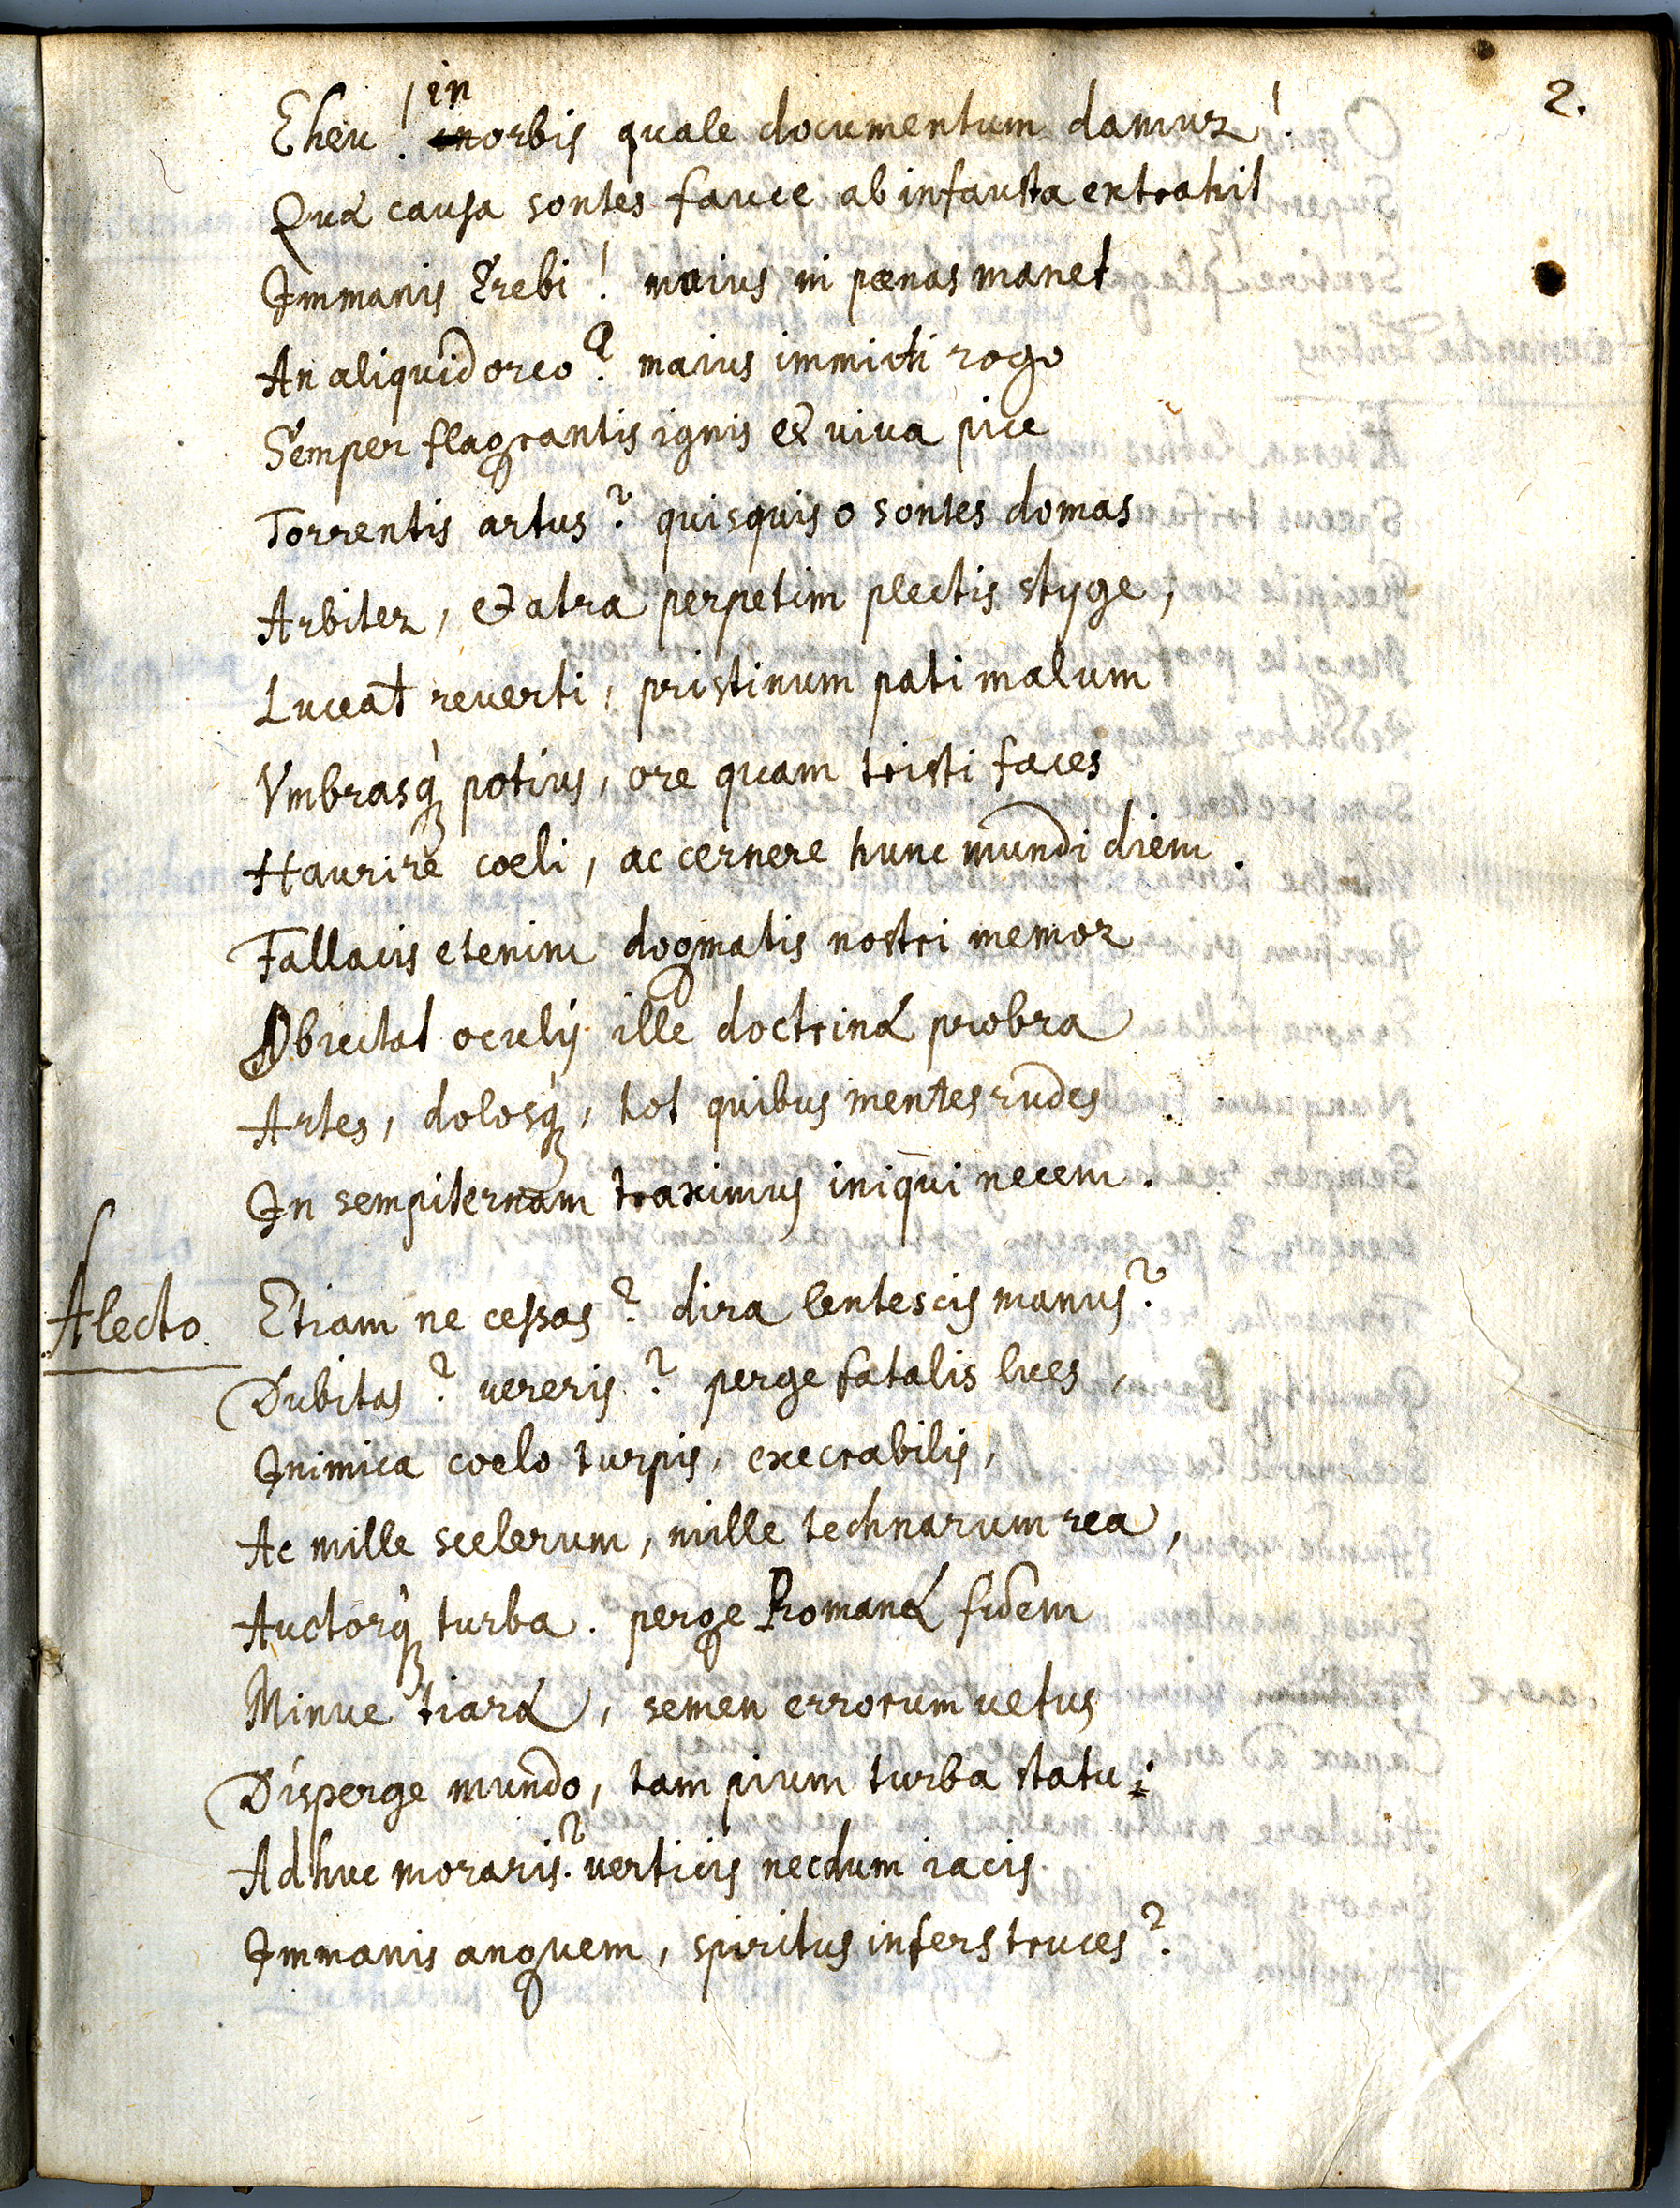 2.
Eheu! in orbis quale documentum damur!
Quæ causa sontes fauce ab infausta extrahit
Immanis Erebi! maius in pœnas manet
An aliquid orco? maius immiti rogo
Semper flagrantis ignis et viva pice
Torrentis artus? quisquis o sontes domas
Arbiter, et atra perpetim plectis styge,
Liceat reverti, pristinum pati malum
Vmbrasq; potius, ore quam tristi faces
Haurire coeli, ac cernere hunc mundi diem.
Fallacis etenim dogmatis nostri memor
Obiectat oculis ille doctrinæ probra
Artes, dolosq;, tot quibus mentes rudes
In sempiternam traximus iniqui necem.
Alecto. Etiam ne cessas? dira lentescis manus?
Dubitas? vereris? perge fatalis lues,
Inimica coelo turpis, execrabilis,
Ac mille scelerum, mille technarum rea,
Auctorq; turba. perge Romanæ fidem
Minue tiaræ, semen errorum vetus
Disperge mundo, tam pium turba statu;
Adhuc moraris? verticis necdum iacis
Immanis anguem, spiritus infers truces?